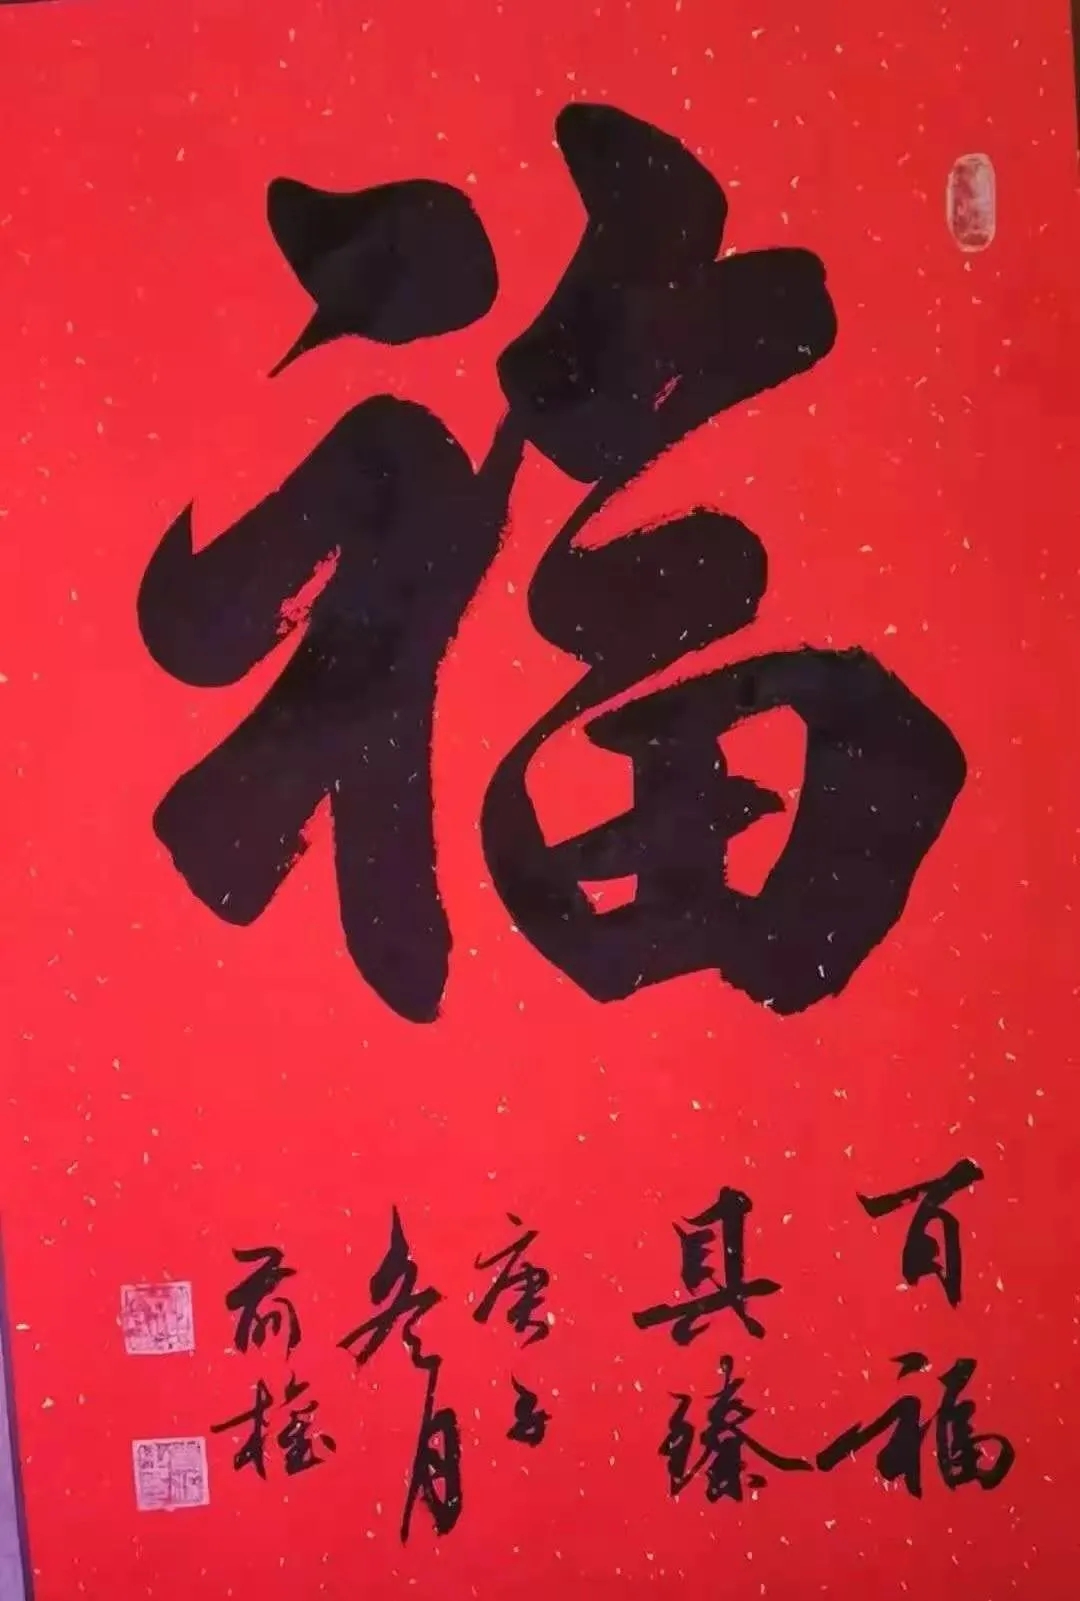 福
百福
具臻
庚子
冬月